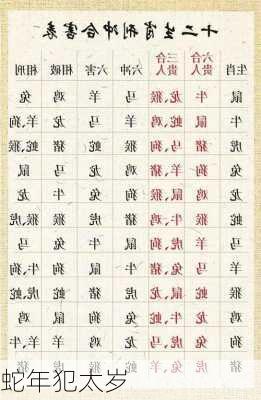 十二生肖刑冲合害表
生肖 六合贵人 三合贵人 六冲 六害 相破 相刑
鼠 牛 龙、猴 马 羊 鸡 兔
牛 鼠 蛇、鸡 羊 马 龙 狗、羊
虎 猪 马、狗 猴 蛇 猪 蛇、猴
兔 狗 羊、猪 鸡 龙 马 鼠
龙 鸡 鼠、猴 狗 兔 牛 龙
蛇 猴 牛、鸡 猪 虎 猴 虎、猴
马 羊 虎、狗 鼠 牛 兔 马
羊 马 兔、猪 牛 鼠 狗 狗、牛
猴 蛇 鼠、龙 虎 猪 蛇 虎、蛇
鸡 龙 牛、蛇 兔 狗 鼠 鸡
狗 兔 虎、马 龙 鸡 羊 牛、羊
猪 虎 兔、羊 蛇 猴 虎 猪
蛇年犯太岁